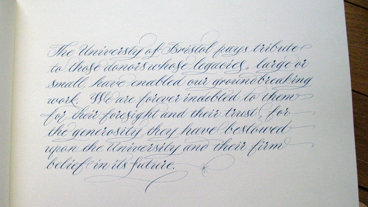 The University of Bristol pays tribute
to those donors whose legacies, large or
small, have enabled our groundbreaking
work. We are forever indebted to them
for their foresight and their trust, for
the generosity they have bestowed
upon the University and their firm
belief in its future.